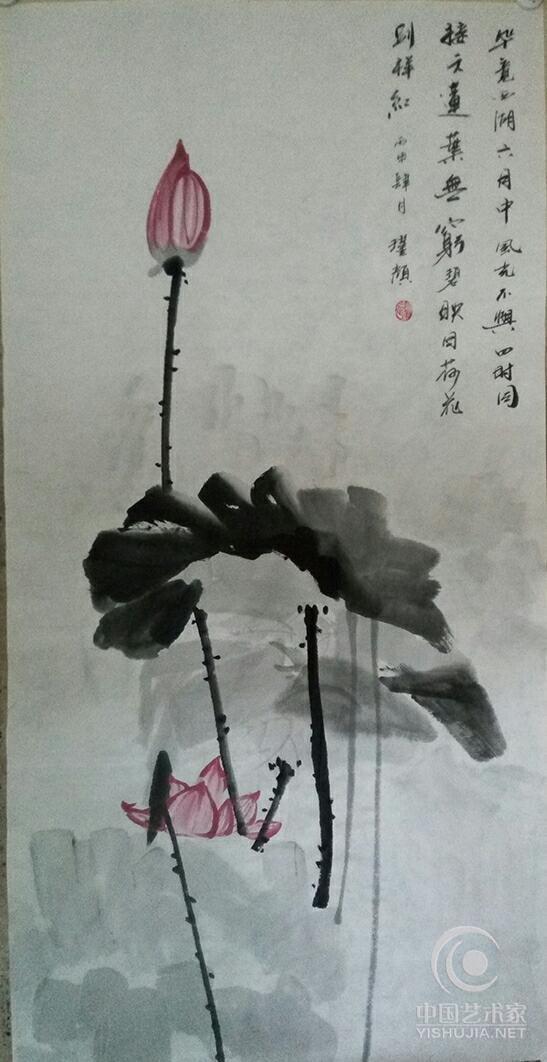 毕竟西湖六月中 風光不與四时同
接天蓮葉無窮碧映日荷花
别樣紅 丙申肆月
中国艺术家
YISHUJIA.NET